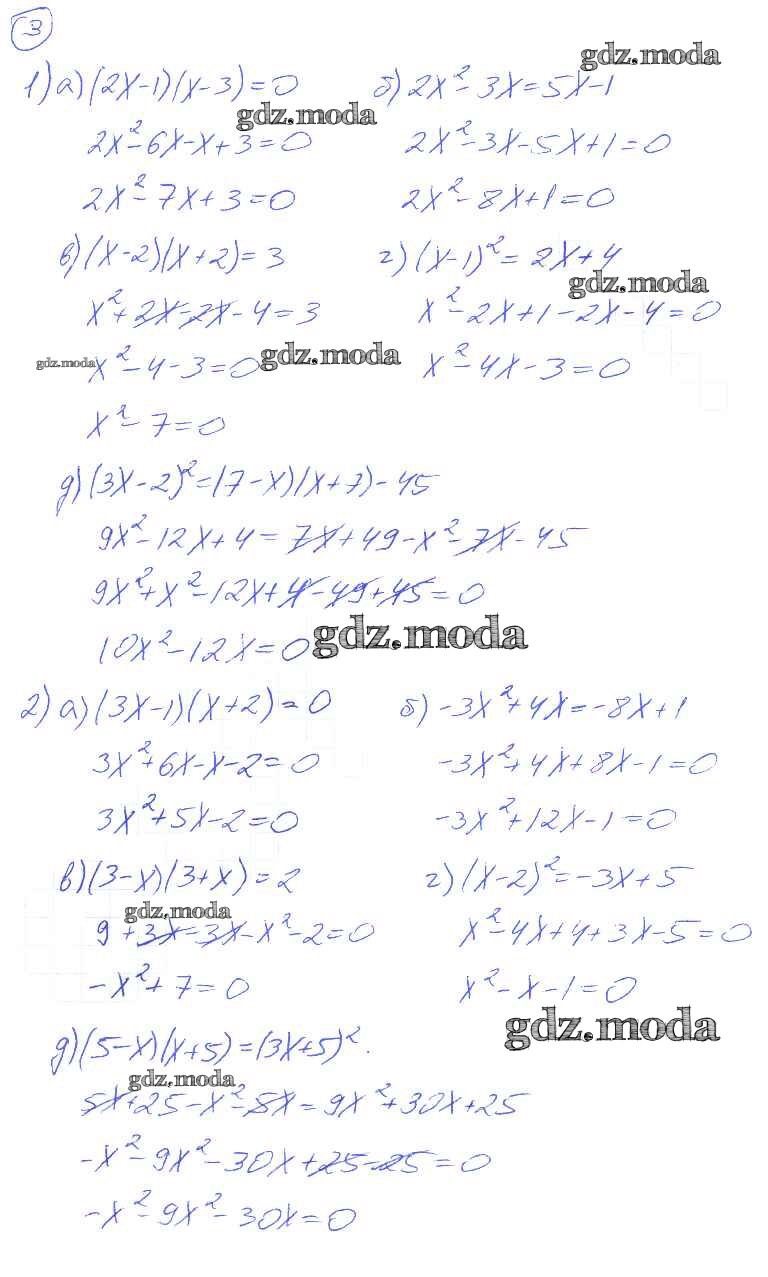 3
gdz.moda
1) а) (2x-1)(x-3)=0 б) 2x²-3x=5x-1
gdz.moda
2x²-6x-x+3=0 2x²-3x-5x+1=0
2x²-7x+3=0 2x²-8x+1=0
в) (x-2)(x+2)=3 г) (x-1)²=2x+4
gdz.moda
x²+2x-2x-4=3 x²-2x+1-2x-4=0
gdz.moda x²-4-3=0 gdz.moda x²-4x-3=0
x²-7=0
д) (3x-2)²=(7-x)(x+7)-45
9x²-12x+4=7x+49-x²-7x-45
9x²+x²-12x+4-49+45=0
10x²-12x=0 gdz.moda
2) а) (3x-1)(x+2)=0 б) -3x²+4x=-8x+1
3x²+6x-x-2=0 -3x²+4x+8x-1=0
3x²+5x-2=0 -3x²+12x-1=0
в) (3-x)(3+x)=2 г) (x-2)²=-3x+5
gdz.moda
9+3x-3x-x²-2=0 x²-4x+4+3x-5=0
-x²+7=0 x²-x-1=0
gdz.moda
д) (5-x)(x+5)=(3x+5)².
gdz.moda
5x+25-x²-5x=9x²+30x+25
-x²-9x²-30x+25-25=0
-x²-9x²-30x=0